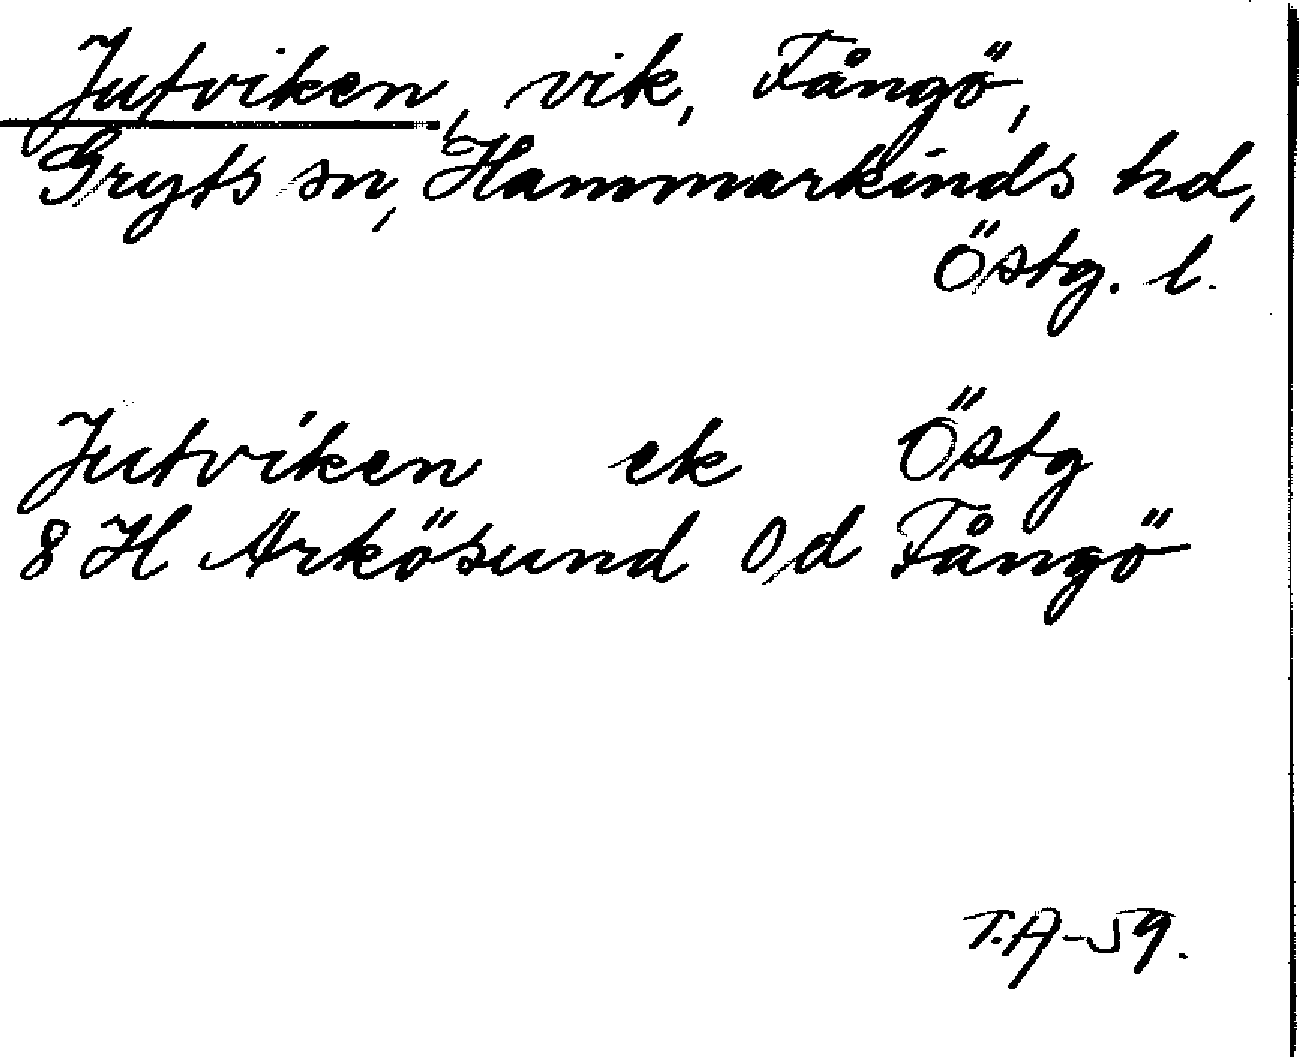 Jutviken, vik, Fångö,
Gryts sn, Hammarkinds hd,
Östg. l.
Jutviken ek Östg
8 H Arkösund Od Fångö
T.A-59.